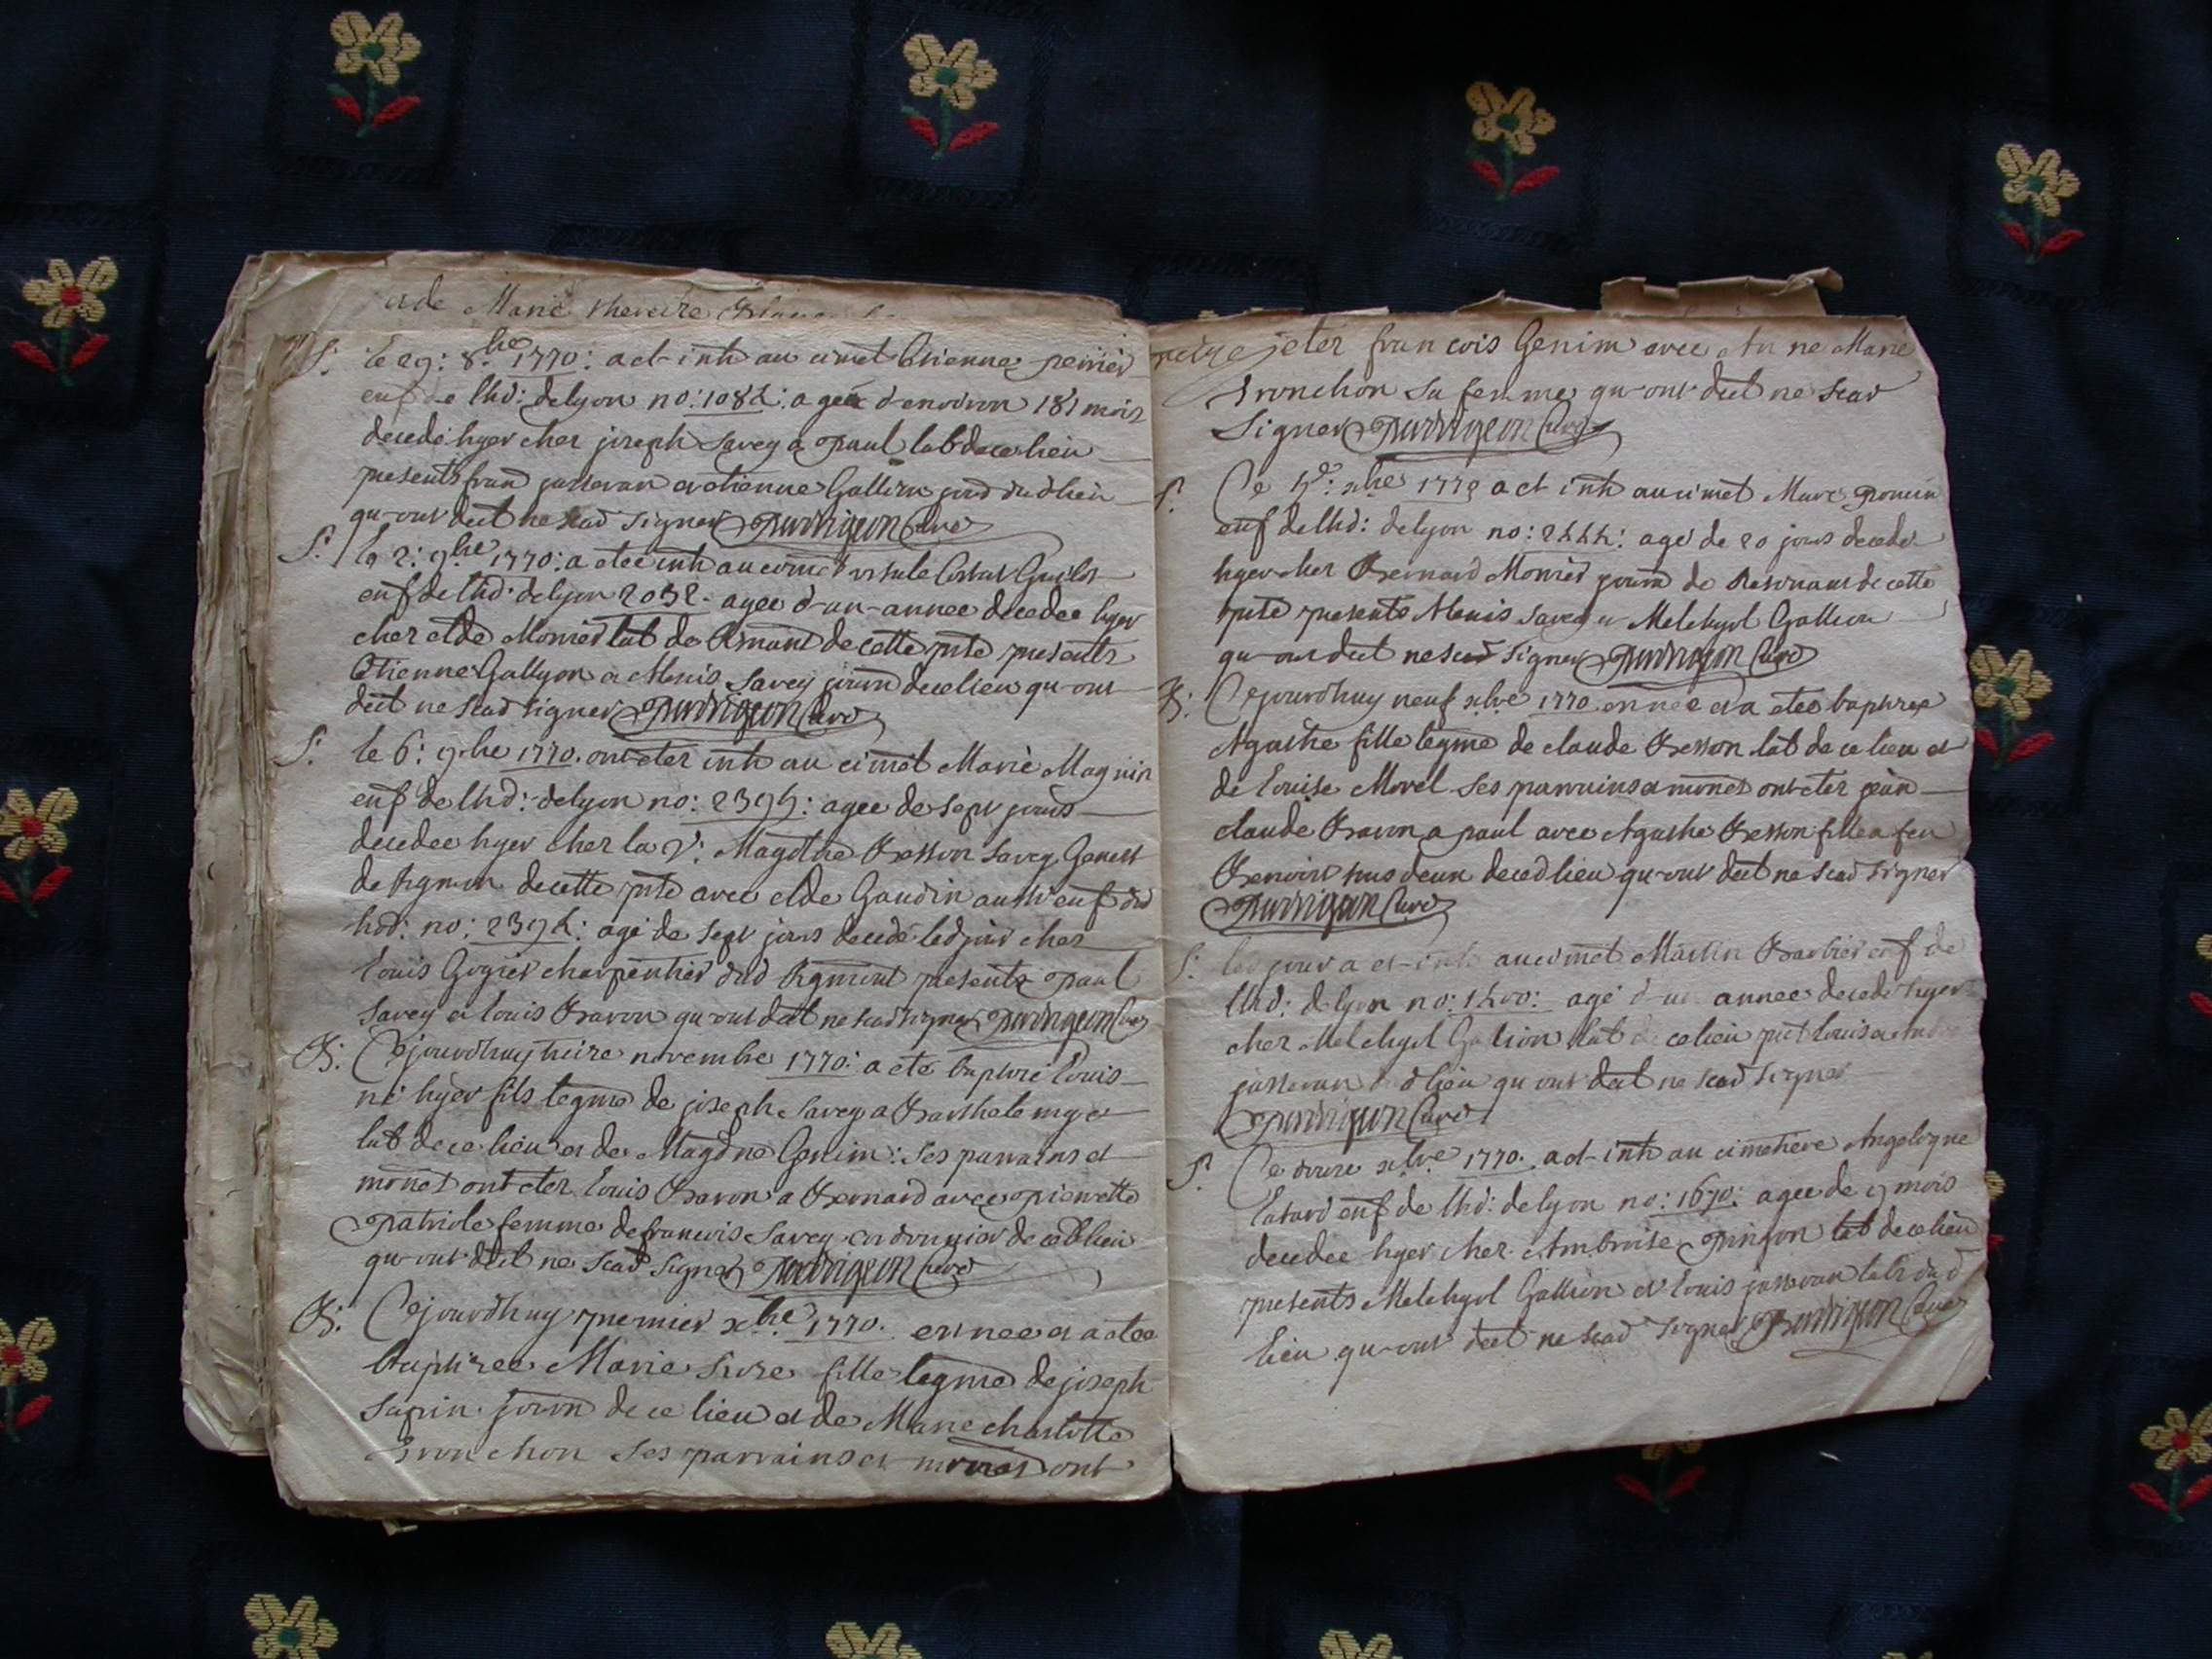 et de Marie
S: le 29: 8bre 1770: a et inh au cimet Etienne perrier
enf de lhd: de lyon no: 1084: agée d'environ 18 mois
decedé hyer chez joseph Savey a paul lab de ce lieu
presents franc jasseran et etienne Gallion jourd dud lieu
qu-ont deet ne scad signer Purrigeon Curé
S: le 2: 9bre 1770: a etee inh au cimet ursule
enf de lhd: de lyon 2032 agee d-un-annee decedee hyer
chez clde Monier lab de de cette pste presents
Etienne Gallyon et Alexis Savey journ de ce lieu qu-ont
deet ne scad signer Purrigeon Curé
S: le 6: 9bre 1770. ont eter inh au cimet Marie Magnin
enf de lhd: de lyon no: 2395: agee de sept jours
decedee hyer chez la v: Magdne Besson Savey
de de cette pste avec clde Gaudin aussi enf dud
hd: no: 2394: agé de sept jours decedé led jour chez
louis Gogier charpentier dud presents paul
Savey et louis Bavon qu-ont deet ne scad signer Purrigeon Curé
B: Cejourdhuy treize novembre 1770: a ete baptizé louis
né hyer fils legme de joseph Savey a Barthelemy et
lab de ce lieu et de Magdne Genim: Ses parrains et
mones ont eter louis Bavon a Bernard avec pierrette
patriole femme de francois Savey cordonnier de ced lieu
qu-ont deet ne scad signer Purrigeon Curé
B: Cejourdhuy premier xbre 1770. en nee et a etee
baptizee Marie fille legme de joseph
Sapin journ de ce lieu et de Marie charlotte
Tronchon Ses parrains et mones ont
jeter francois Genim avec An ne Marie
Tronchon Sa femme qu-ont deet ne scad
Signer Purrigeon Curé
S: Ce xbre 1770 a et inh au cimet Marc
enf de lhd: de lyon no: 2444: agé de 20 jours decede
hyer chez Bernard Monier journ de de cette
pste presents Alexis Savey et Melchyol Gallion
qu-ont deet ne scad signer Purrigeon Curé
B: Cejourdhuy neuf xbre 1770 en nee et a etee baptizee
Agathe fille legme de claude Besson lab de ce lieu et
de louise Morel Ses parrains et mones ont eter jean
claude Bavon a paul avec Agathe Besson fille a feu
Benoist tous deux de ced lieu qu-ont deet ne scad signer
Purrigeon Curé
S: led jour a et inh au cimet Martin Barbier enf de
lhd: de lyon no: 1400: agé d-un annee decedé hyer
chez Melchyol Gallion lab de ce lieu louis et
jasseran dud lieu qu ont deet ne scad signer
Purrigeon Curé
S: Ce douze xbre 1770. a et inh au cimetiere Angelique
enf de lhd: de lyon no: 1670: agee de 9 mois
decedee hyer chez Ambroise lab de ce lieu
presents Melchyol Gallion et louis jasseran labs dud
lieu qu-ont deet ne scad signer Purrigeon Curé